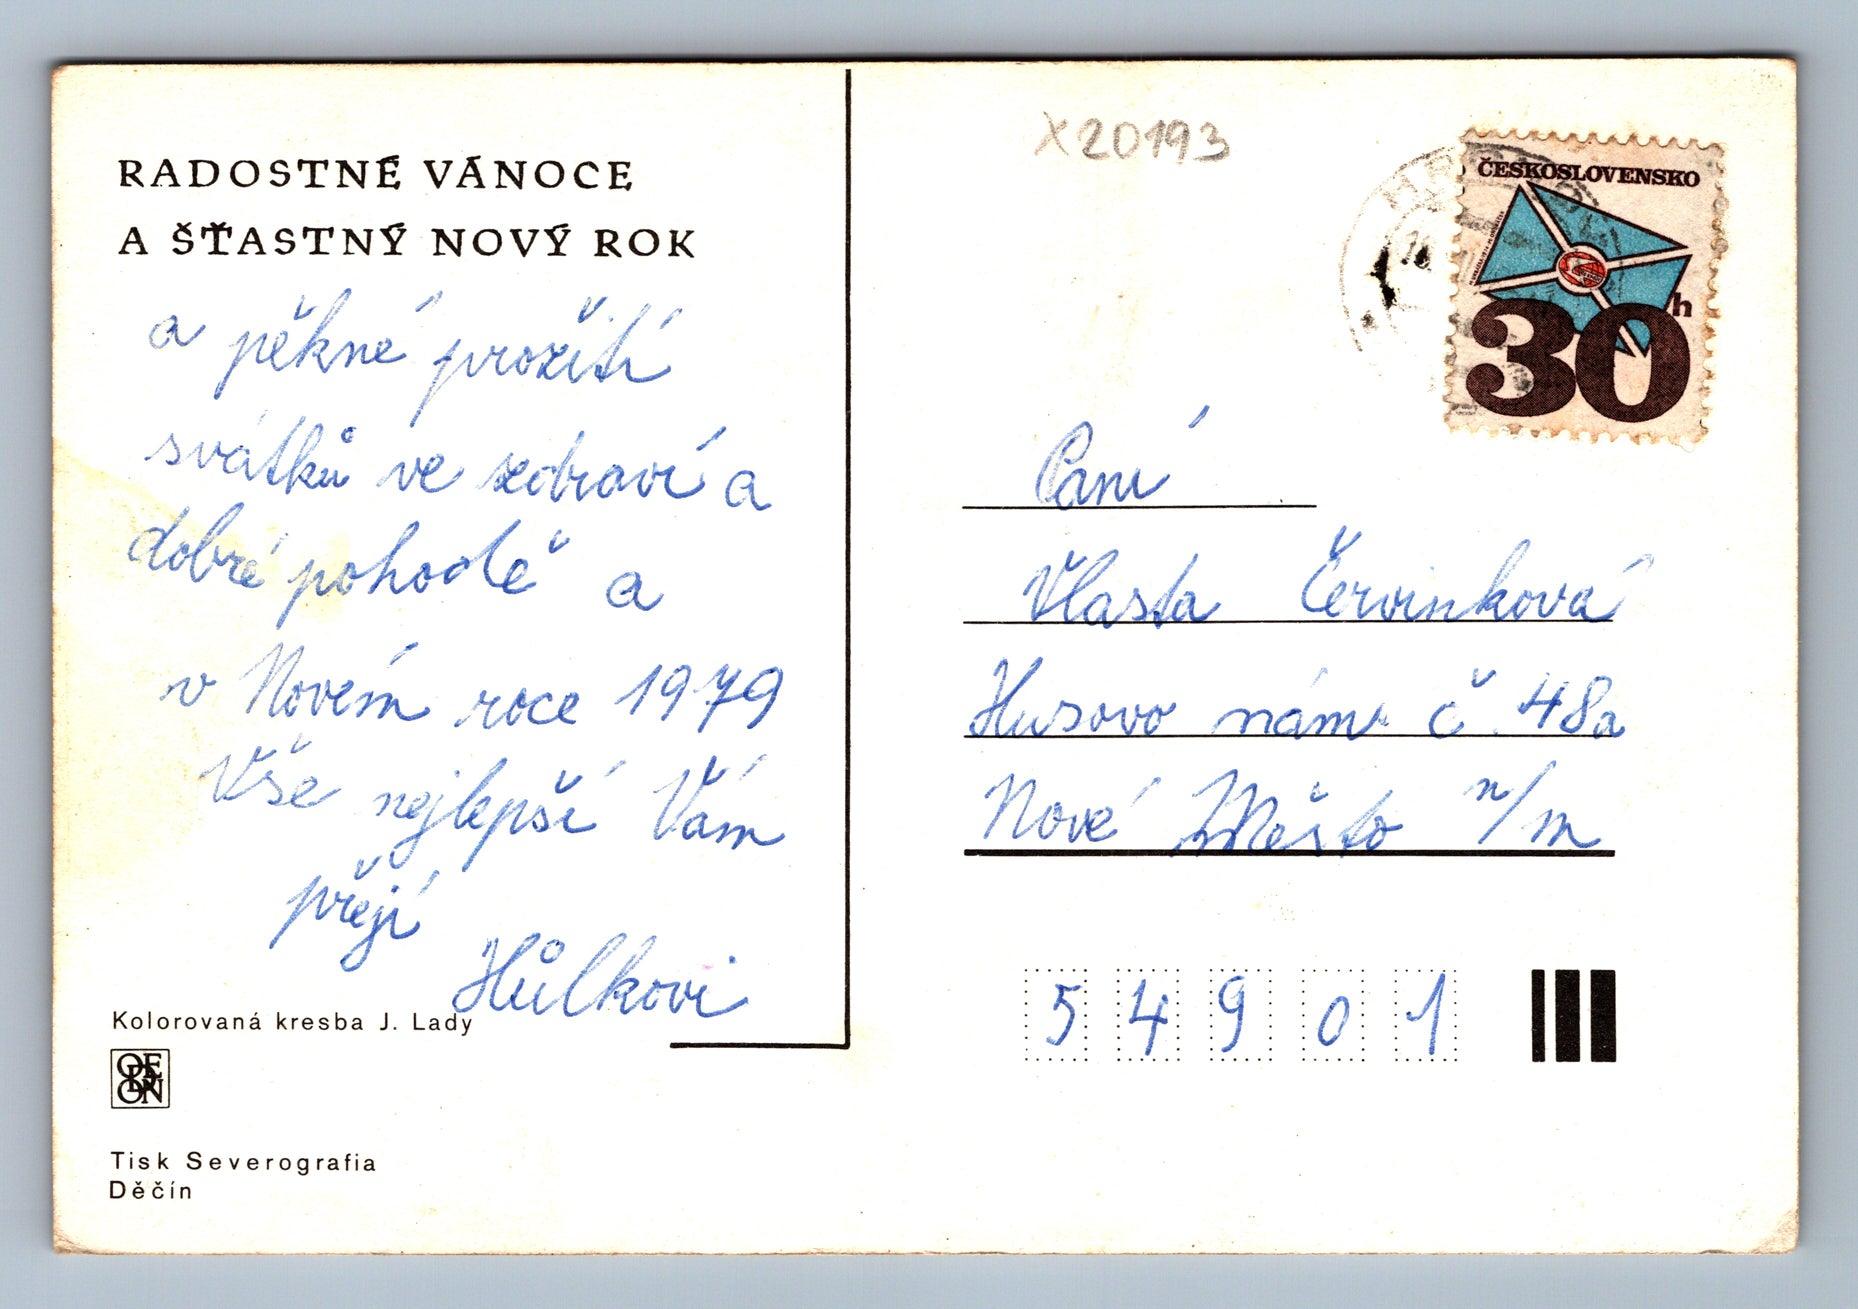 RADOSTNÉ VÁNOCE
A ŠŤASTNÝ NOVÝ ROK
a pěkné prožití
svátků ve zdraví a
dobré pohodě a
v Novém roce 1979
Vše nejlepší Vám
přejí
Hůlkovi
Kolorovaná kresba J. Lady
ODEON
Tisk Severografia
Děčín
X20193
ČESKOSLOVENSKO
30h
Paní
Vlasta Červinková
Husovo nám. č. 48a
Nové Město n/m
54901